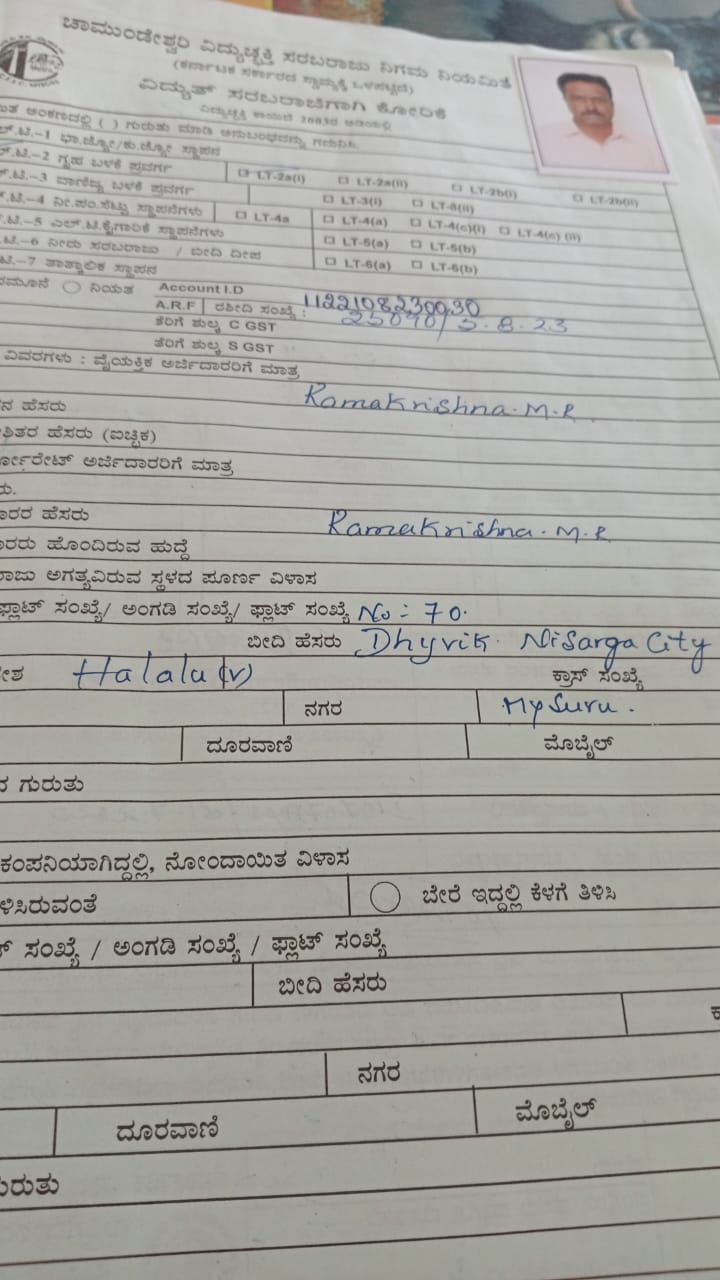 ಚಾಮುಂಡೇಶ್ವರಿ ವಿದ್ಯುಚ್ಛಕ್ತಿ ಸರಬರಾಜು ನಿಗಮ ನಿಯಮಿತ
(ಕರ್ನಾಟಕ ಸರ್ಕಾರದ ಸ್ವಾಮ್ಯಕ್ಕೆ ಒಳಪಟ್ಟಿದೆ)
ವಿದ್ಯುತ್ ಸರಬರಾಜಿಗಾಗಿ ಕೋರಿಕೆ
ವಿದ್ಯುಚ್ಛಕ್ತಿ ಕಾಯಿದೆ 2003ರ ಅಡಿಯಲ್ಲಿ
ಅಂಕಣದಲ್ಲಿ ( ) ಗುರುತು ಮಾಡಿ
.ಟಿ.-1 ಭಾ.ಜ್ಯೋ/ಕು.ಜ್ಯೋ ಸ್ಥಾಪನ
.ಟಿ.-2 ಗೃಹ ಬಳಕೆ ಪ್ರವರ್ಗ LT-2a(i) LT-2a(ii) LT-2b(i) LT-2b(ii)
.ಟಿ.-3 ವಾಣಿಜ್ಯ ಬಳಕೆ ಪ್ರವರ್ಗ LT-3(i) LT-3(ii)
.ಟಿ.-4 ನೀ.ಪಂ.ಸೆಟ್ಟು ಸ್ಥಾಪನೆಗಳು LT-4a LT-4(a) LT-4(c)(i) LT-4(c) (ii)
.ಟಿ.-5 ಎಲ್.ಟಿ.ಕೈಗಾರಿಕೆ ಸ್ಥಾಪನೆಗಳು LT-5(a) LT-5(b)
.ಟಿ.-6 ನೀರು ಸರಬರಾಜು / ಬೀದಿ ದೀಪ LT-6(a) LT-6(b)
.ಟಿ.-7 ತಾತ್ಕಾಲಿಕ ಸ್ಥಾಪನ
ನಿಯತ Account I.D
A.R.F ರಶೀದಿ ಸಂಖ್ಯೆ : 1122108230030
ತೆರಿಗೆ ಶುಲ್ಕ C GST 25090/5.8.23
ತೆರಿಗೆ ಶುಲ್ಕ S GST
ವಿವರಗಳು : ವೈಯಕ್ತಿಕ ಅರ್ಜಿದಾರರಿಗೆ ಮಾತ್ರ
ನ ಹೆಸರು Ramakrishna.M.R
ಶಿತರ ಹೆಸರು (ಐಚ್ಛಿಕ)
ರ್ಪೋರೇಟ್ ಅರ್ಜಿದಾರರಿಗೆ ಮಾತ್ರ
ರು.
ಾರರ ಹೆಸರು Ramakrishna.M.R
ಾರರು ಹೊಂದಿರುವ ಹುದ್ದೆ
ರಾಜು ಅಗತ್ಯವಿರುವ ಸ್ಥಳದ ಪೂರ್ಣ ವಿಳಾಸ
ಫ್ಲಾಟ್ ಸಂಖ್ಯೆ/ ಅಂಗಡಿ ಸಂಖ್ಯೆ/ ಫ್ಲಾಟ್ ಸಂಖ್ಯೆ No: 70.
ಬೀದಿ ಹೆಸರು Dhyvik Nisarga City
ೇಶ Halalu (v) ಕ್ರಾಸ್ ಸಂಖ್ಯೆ
ನಗರ Mysuru.
ದೂರವಾಣಿ ಮೊಬೈಲ್
ನ ಗುರುತು
ಕಂಪನಿಯಾಗಿದ್ದಲ್ಲಿ, ನೋಂದಾಯಿತ ವಿಳಾಸ
ಳಿಸಿರುವಂತೆ ಬೇರೆ ಇದ್ದಲ್ಲಿ ಕೆಳಗೆ ತಿಳಿಸಿ
ಸಂಖ್ಯೆ / ಅಂಗಡಿ ಸಂಖ್ಯೆ / ಫ್ಲಾಟ್ ಸಂಖ್ಯೆ
ಬೀದಿ ಹೆಸರು
ಕ
ನಗರ
ದೂರವಾಣಿ ಮೊಬೈಲ್
ಗುರುತು